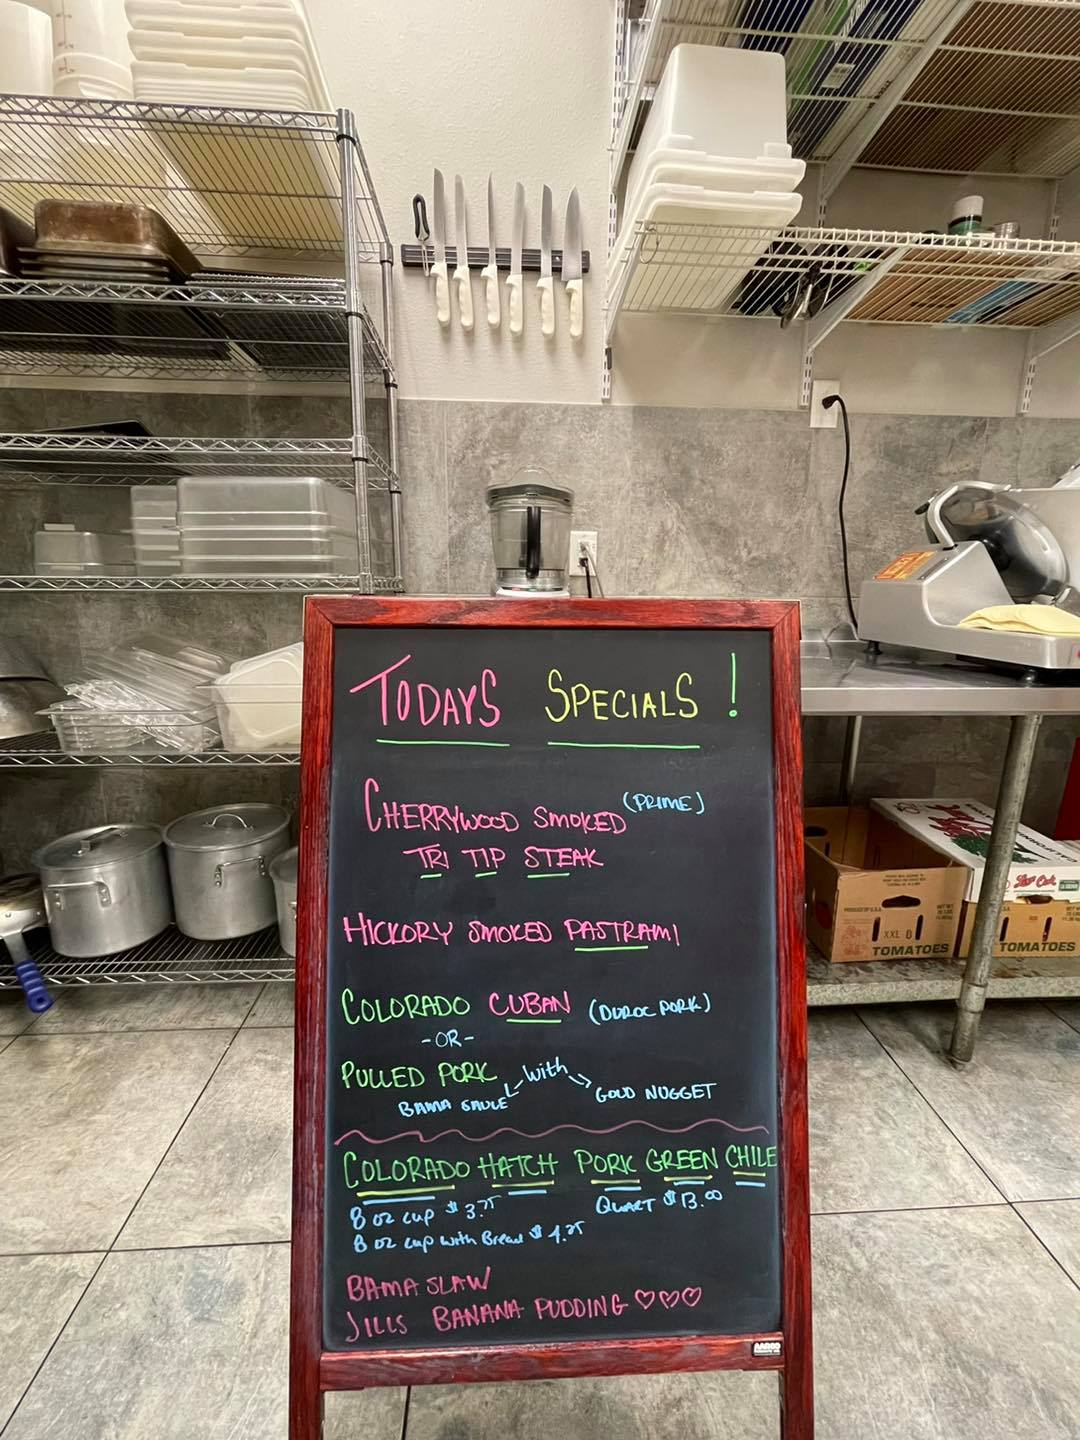 TODAYS SPECIALS!
CHERRYWOOD SMOKED (PRIME)
TRI TIP STEAK
HICKORY SMOKED PASTRAMI
COLORADO CUBAN (DUROC PORK)
-OR-
PULLED PORK with
BAMA SAUCE GOLD NUGGET
COLORADO HATCH PORK GREEN CHILE
8 oz cup $3.75 QUART $13.00
8 oz cup with Bread $4.25
BAMA SLAW
JILLS BANANA PUDDING ♡♡♡
XXL
TOMATOES
TOMATOES